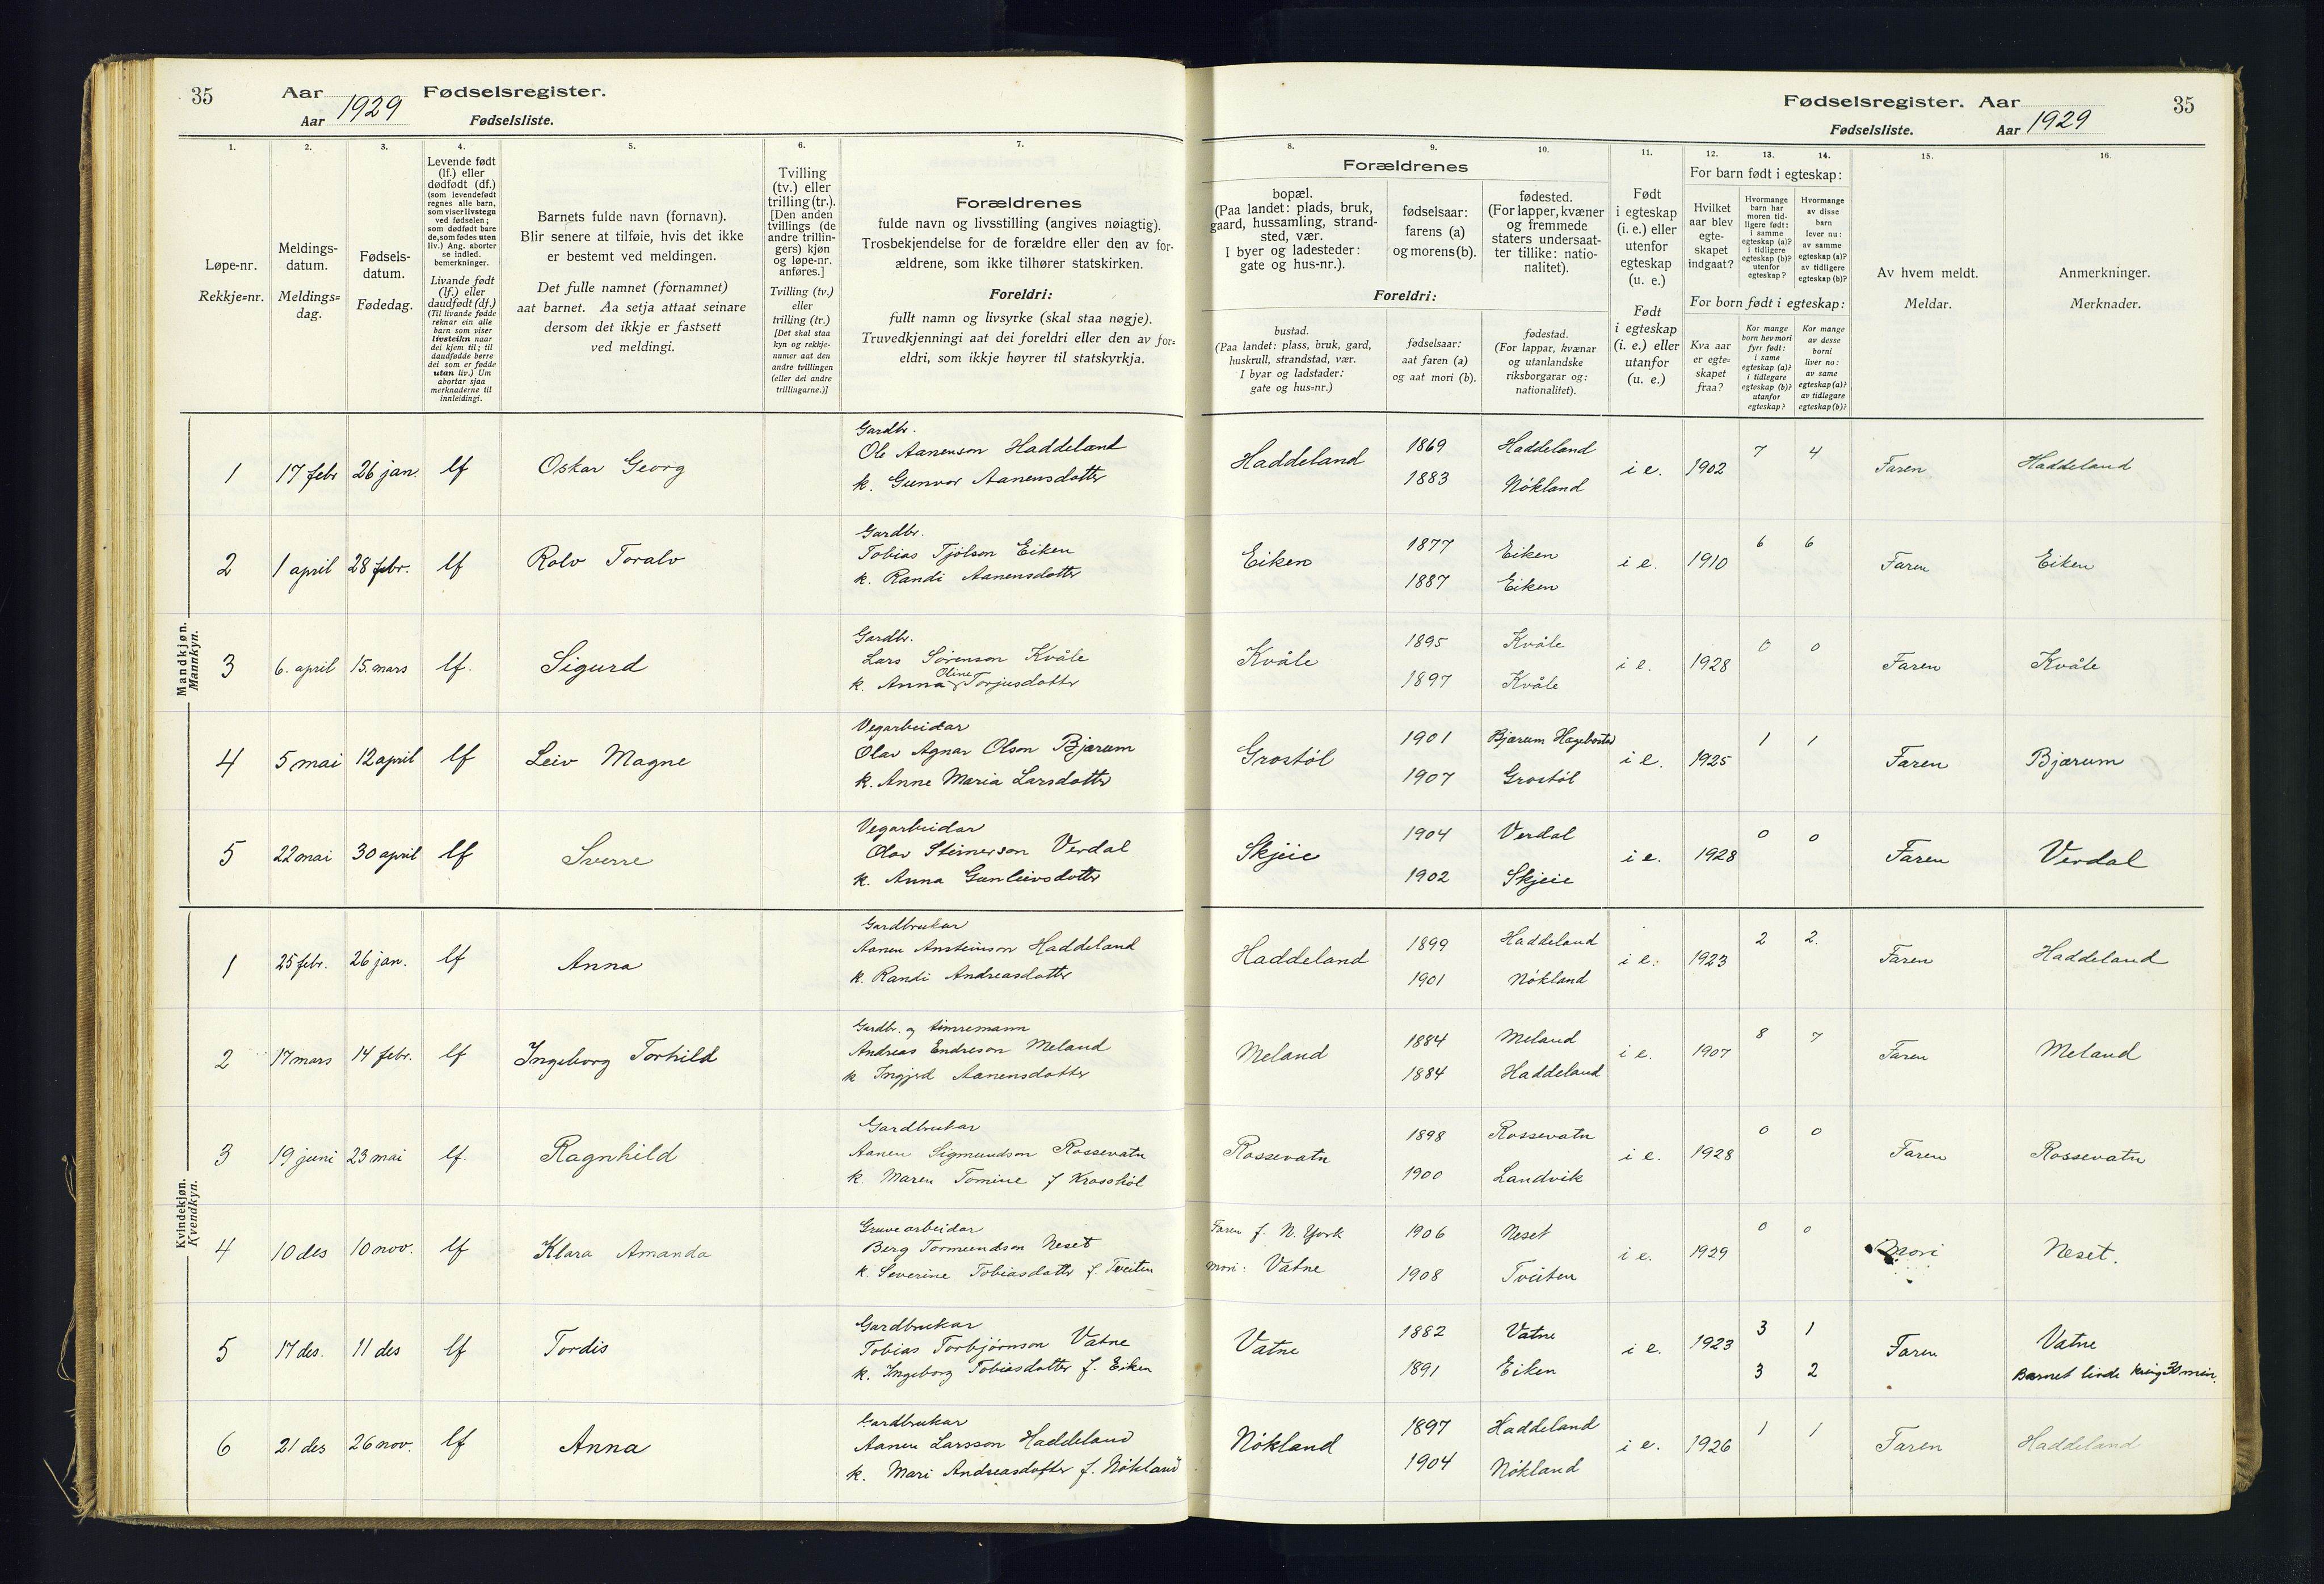 35
Aar
Fødselsregister.
Aar 1929
Fødselsliste.
Fødselsregister. Aar
35
Fødselsliste.
Aar 1929
1.
Løpe-nr.
Rekkje=nr.
2.
Meldings-
datum.
Meldings=
dag.
3.
Fødsels-
datum.
Fødedag.
4.
Levende født
(lf.) eller
dødfødt (df.)
(som levendefødt
regnes alle barn,
som viser livstegn
ved fødselen;
som dødfødt bare
de, som fødes uten
liv.) Ang. aborter
se indled.
bemerkninger.
Livande født
(lf.) eller
daudfødt (df.)
(Til livande fødde
reknar ein alle
barn som viser
livsteikn naar
dei kjem til; til
daudfødde berre
dei som er fødde
utan liv.) Um
abortar sjaa
merknaderne til
innleidingi.
5.
Barnets fulde navn (fornavn).
Blir senere at tilføie, hvis det ikke
er bestemt ved meldingen.
Det fulle namnet (fornamnet)
aat barnet. Aa setja attaat seinare
dersom det ikkje er fastsett
ved meldingi.
6.
Tvilling
(tv.) eller
trilling (tr.).
[Den anden
tvillings (de
andre trillin-
gers) kjøn
og løpe-nr.
anføres.]
Tvilling (tv.)
eller
trilling (tr.)
[Det skal staa
kyn og rekkje-
numer aat den
andre tvillingen
(eller dei andre
trillingarne.)]
7.
Forældrenes
fulde navn og livsstilling (angives nøiagtig).
Trosbekjendelse for de forældre eller den av for-
ældrene, som ikke tilhører statskirken.
Foreldri:
fullt namn og livsyrke (skal staa nøgje).
Truvedkjenningi aat dei foreldri eller den av for=
eldri, som ikkje høyrer til statskyrkja.
8.
Forældrenes
bopæl.
(Paa landet: plads, bruk,
gaard, hussamling, strand-
sted, vær.
I byer og ladesteder:
gate og hus-nr.).
Foreldri:
bustad.
(Paa landet: plass, bruk, gard,
huskrull, strandstad, vær.
I byar og ladstader:
gate og hus=nr.)
9.
fødselsaar:
farens (a)
og morens (b).
fødselsaar:
aat faren (a)
og aat mori (b).
10.
fødested.
(For lapper, kvæner
og fremmede
staters undersaat-
ter tillike: natio-
nalitet).
fødestad.
(For lappar, kvænar
og utanlandske
riksborgarar og:
nationalitet).
11.
Født
i egteskap
(i. e.) eller
utenfor
egteskap
(u. e.)
Født
i egteskap
(i. e.) eller
utanfor
egteskap
(u. e.)
12.
For barn født i egteskap:
Hvilket
aar blev
egte-
skapet
indgaat?
For born født i egteskap:
Kva aar
er egte=
skapet
fraa?
13.
Hvormange
barn har
moren tid-
ligere født:
i samme
egteskap (a)?
i tidligere
egteskap (b)?
utenfor
egteskap?
Kor mange
born hev mori
fyrr født:
i same
egteskap (a)?
i tidlegare
egteskap (b)?
utanfor
egteskap?
14.
Hvormange
av disse
barn
lever nu:
av samme
egteskap (a)?
av tidligere
egteskap (b)?
Kor mange
av desse
borni
liver no:
av same
egteskap (a)?
av tidlegare
egteskap (b)?
15.
Av hvem meldt.
Meldar.
16.
Anmerkninger.
Merknader.
Mandkjøn.
Mannkyn.
1 17 febr 26 jan. lf Oskar Georg
Gardbr.
Ole Aanenson Haddeland
k. Gunvor Aanensdotter
Haddeland 1869 Haddeland i e. 1902 7 4 Faren Haddeland
1883 Nökland
2 1 april 28 febr. lf Rolv Toralv
Gardbr.
Tobias Tjölson Eiken
k. Randi Aanensdotter
Eiken 1877 Eiken i e. 1910 6 6 Faren Eiken
1887 Eiken
3 6. april 15. mars lf. Sigurd
Gardbr.
Lars Sörenson Kvåle
k. Anna Oline Torjusdotter
Kvåle 1895 Kvåle i e. 1928 0 0 Faren Kvåle
1897 Kvåle
4 5 mai 12 april lf Leiv Magne
Vegarbeidar
Olav Agnar Olson Bjærum
k. Anne Maria Larsdotter
Grostöl 1901 Bjærum Hægebostad i e. 1925 1 1 Faren Bjærum
1907 Grostöl
5 22 mai 30 april lf Sverre
Vegarbeidar
Olav Steinerson Verdal
k. Anna Gunleivsdotter
Skjeie 1904 Verdal i e. 1928 0 0 Faren Verdal
1902 Skjeie
Kvindekjøn.
Kvendkyn.
1 25 febr. 26 jan. lf Anna
Gardbrukar
Aanen Ansteinson Haddeland
k. Randi Andreasdotter
Haddeland 1899 Haddeland i e. 1923 2 2. Faren Haddeland
1901 Nökland
2 17 mars 14 febr. lf Ingeborg Torhild
Gardbr. og timremann
Andreas Endreson Meland
k Ingjerd Aanensdotter
Meland 1884 Meland i e. 1907 8 7 Faren Meland
1884 Haddeland
3 19 juni 23 mai lf. Ragnhild
Gardbrukar
Aanen Sigmundson Rossevatn
k. Maren Tomine f
Rossevatn 1898 Rossevatn i e. 1928 0 0 Faren Rossevatn
1900 Landvik
4 10 des 10 nov. lf Klara Amanda
Gruvearbeidar
Berg Tormundson Neset
k. Severine Tobiasdotter f. Tveiten
Faren f. N. York 1906 Neset i e. 1929 0 0 Mori Neset.
Mori: Vatne 1908 Tveiten
5 17 des. 11 des lf Tordis
Gardbrukar
Tobias Torbjörnson Vatne
k. Ingeborg Tobiasdotter f. Eiken
Vatne 1882 Vatne i e. 1923 3 1 Faren Vatne
1891 Eiken 3 2 Barnet livde kring 30 min.
6 21 des 26 nov. lf Anna
Gardbrukar
Aanen Larsson Haddeland
k. Mari Andreasdotter f. Nökland
Nökland 1897 Haddeland i e. 1926 1 1 Faren Haddeland
1904 Nökland